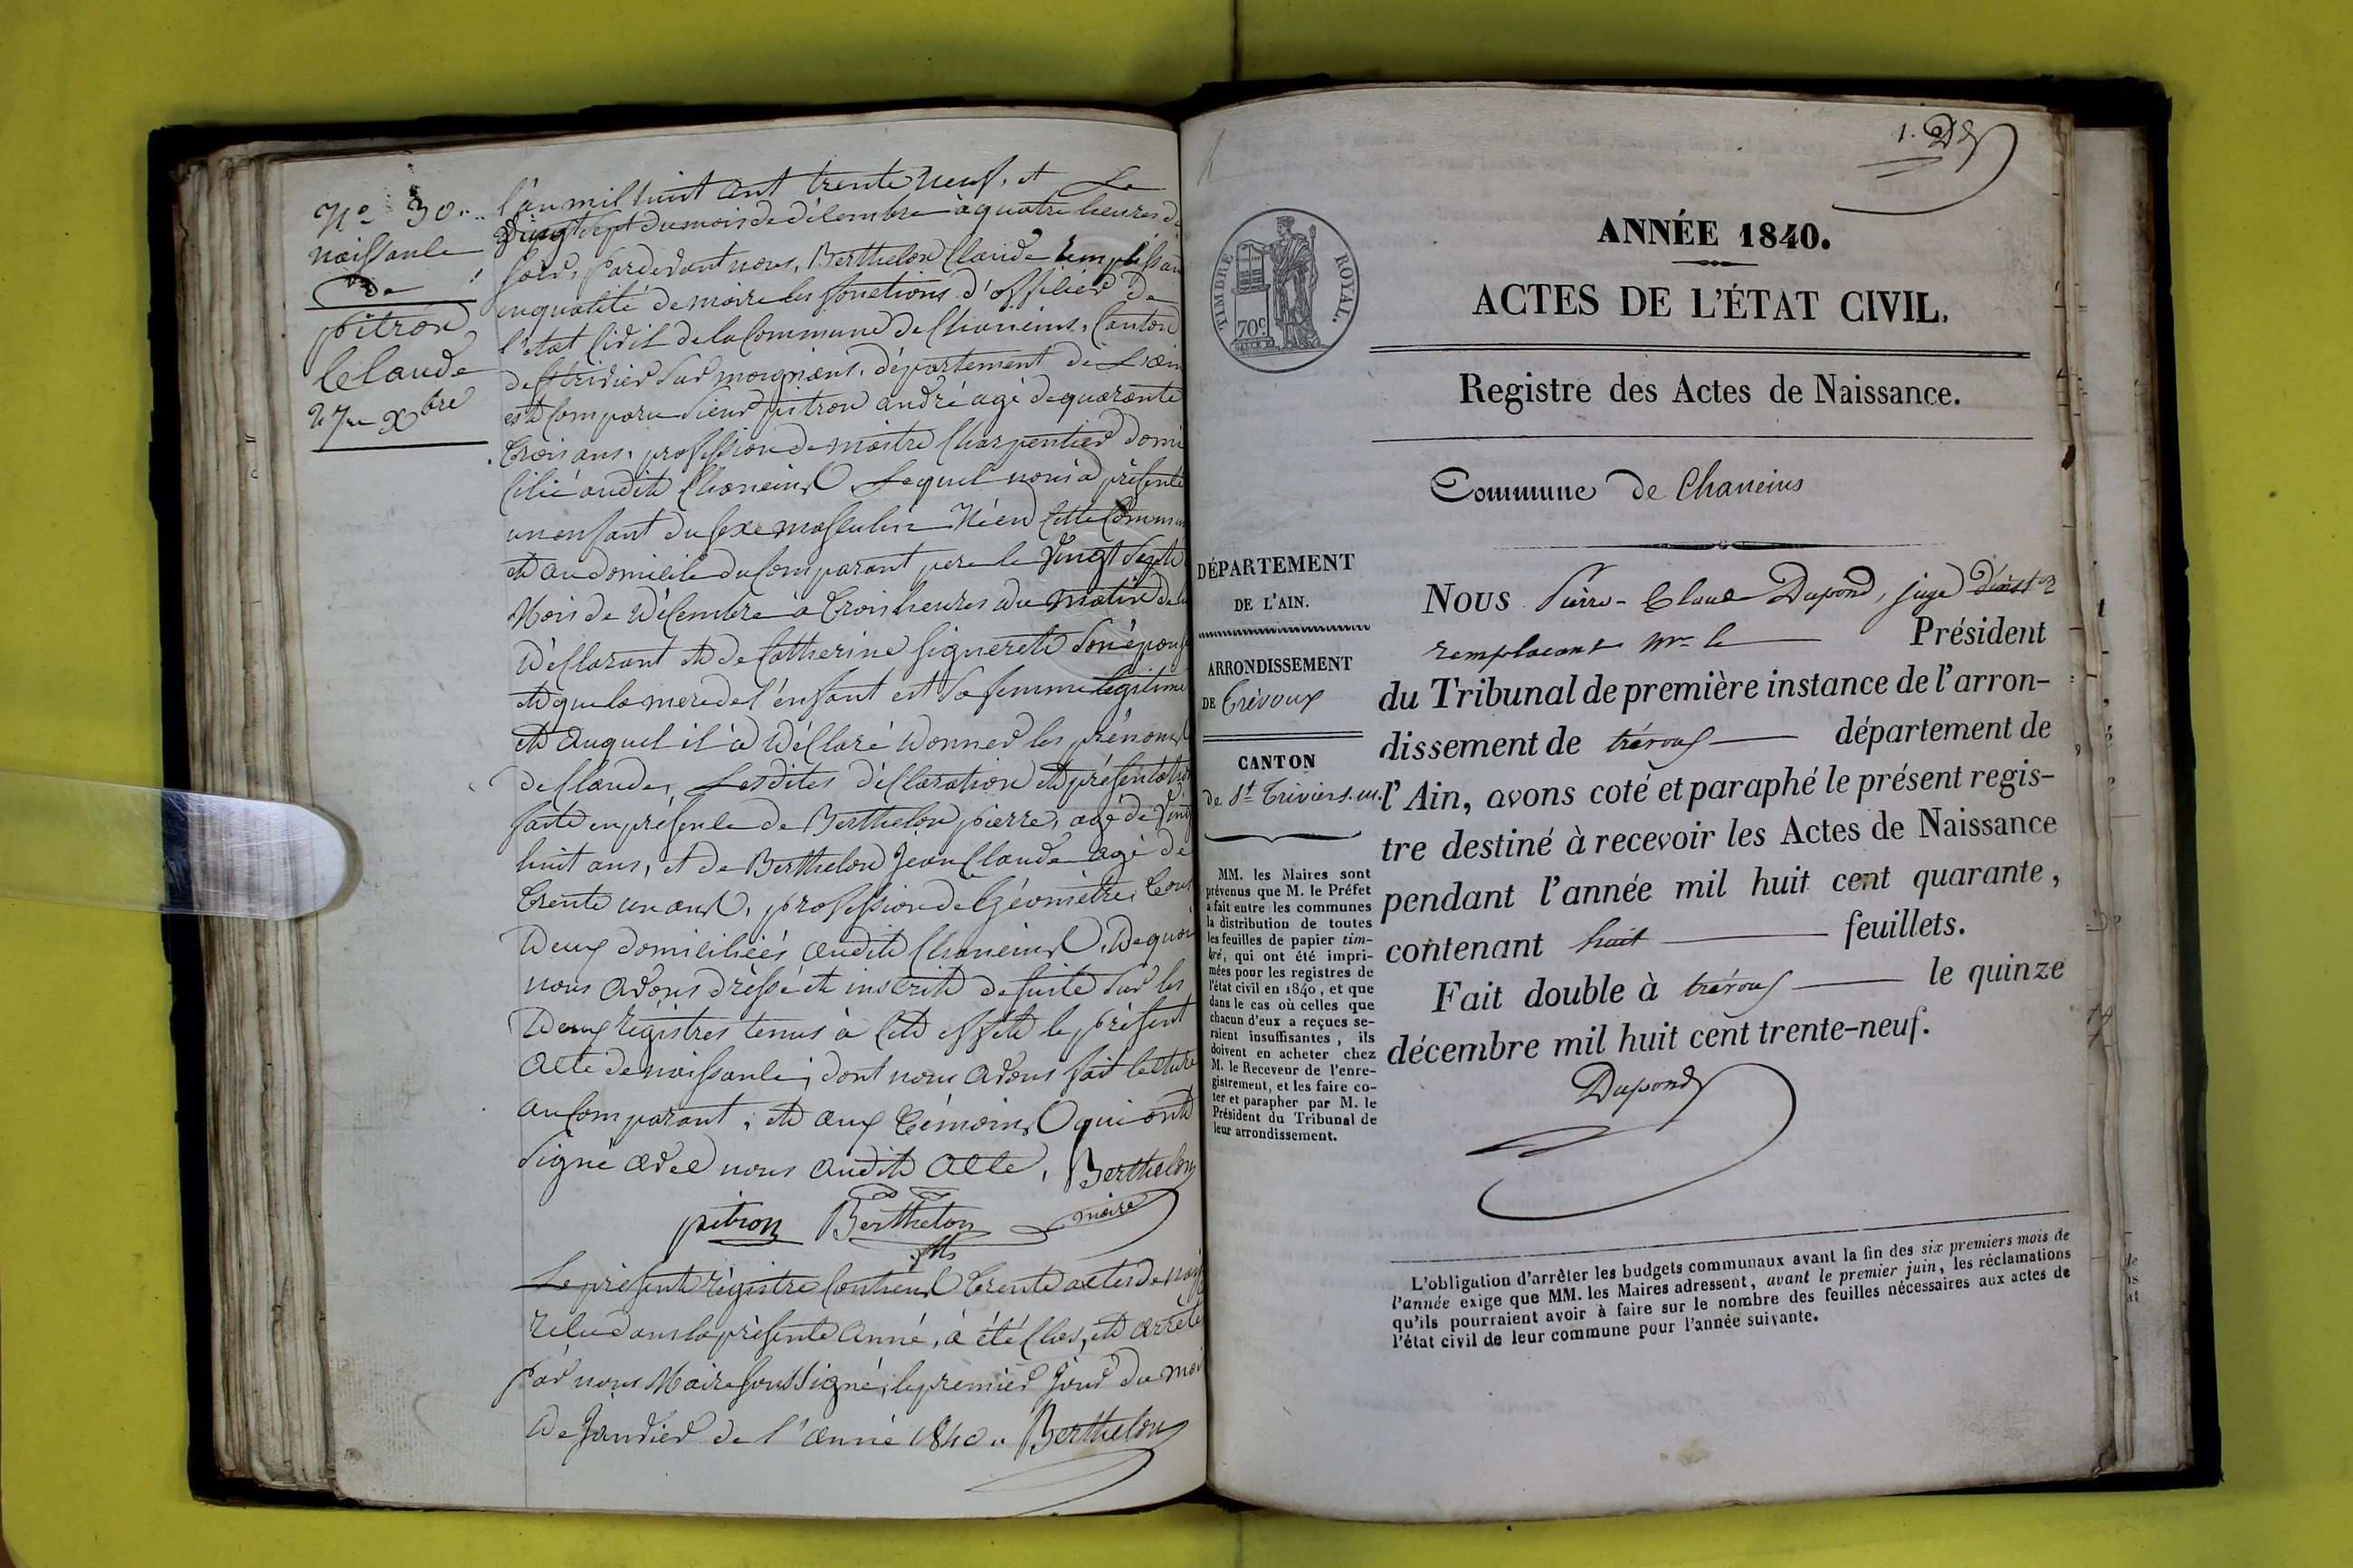 N° 30
naissance
de
pitron
Claude
27e Xbre
l'an mil huit cent trente neuf, et Le
vingt sept du mois de décembre à quatre heures du
soir, pardevant nous, Berthelon Claude remplissant
en qualité de maire les fonctions d'officier de
l'état Civil de la Commune de Chaneins, Canton
de st trivier sur moignans, département de L'ain
est Comparu sieur pitron andré agé de quarante
trois ans, profession de maitre Charpentier domi
cilié audit Chaneins, Lequel nous a présenté
un enfant du sexe masculin Né en cette Commune
et au domicile du Comparant pere le vingt sept
Mois de décembre à trois heures du matin de lui
déclarant et de Catherine signeret son épouse
et que la mere de l'enfant est sa femme légitime
et auquel il a déclaré donner les prénoms
de Claude, Lesdites déclaration et présentation
faite en présence de Berthelon pierre, agé de vingt
huit ans, et de Berthelon Jean Claude agé de
trente un ans, profession de Géomètre, tous
deux domiciliés audit Chaneins, De quoi
nous avons dressé et inscrit de suite sur les
deux registres tenus à cet effet le présent
acte de naissance, dont nous avons fait lecture
au Comparant, et aux témoins qui ont
signé avec nous audit acte, Berthelon
pitron Berthelon maire
fils
Le présent registre Contient trente actes de nais
relue dans la présente anné, à été Clos, et arrété
par nous Maire soussigné, le premier jour du mois
de Janvier de l'année 1840. Berthelon
1.
ANNÉE 1840.
ACTES DE L'ÉTAT CIVIL.
Registre des Actes de Naissance.
Commune de Chaneins
TIMBRE ROYAL.
70c
DÉPARTEMENT
DE L'AIN.
ARRONDISSEMENT
DE Trévoux
CANTON
de St Triviers. m.
MM. les Maires sont
prévenus que M. le Préfet
a fait entre les communes
la distribution de toutes
les feuilles de papier tim-
bré, qui ont été impri-
mées pour les registres de
l'état civil en 1840, et que
dans le cas où celles que
chacun d'eux a reçues se-
raient insuffisantes, ils
doivent en acheter chez
M. le Receveur de l'enre-
gistrement, et les faire co-
ter et parapher par M. le
Président du Tribunal de
leur arrondissement.
Nous Pierre-Claude Dupond, juge d'inston
remplacant Mr le Président
du Tribunal de première instance de l'arron-
dissement de trévoux département de
l'Ain, avons coté et paraphé le présent regis-
tre destiné à recevoir les Actes de Naissance
pendant l'année mil huit cent quarante,
contenant huit feuillets.
Fait double à trévoux le quinze
décembre mil huit cent trente-neuf.
Dupond
L'obligation d'arrêter les budgets communaux avant la fin des six premiers mois de
l'année exige que MM. les Maires adressent, avant le premier juin, les réclamations
qu'ils pourraient avoir à faire sur le nombre des feuilles nécessaires aux actes de
l'état civil de leur commune pour l'année suivante.